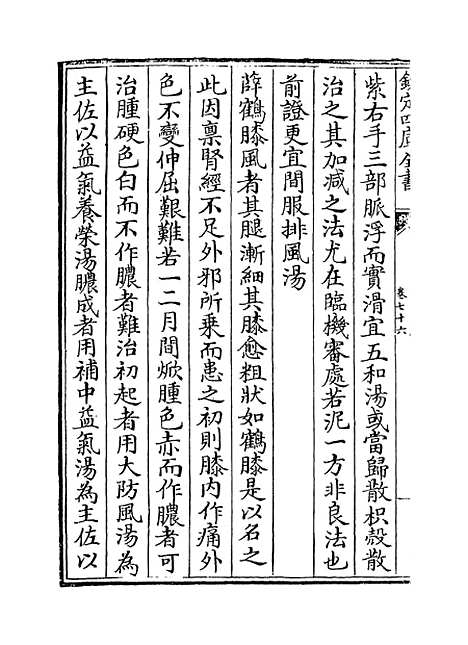 欽定四庫全書
卷七十六
紫右手三部脈浮而實滑宜五和湯或當歸散枳殼散
治之其加减之法尤在臨機審處若泥一方非良法也
前證更宜間服排風湯
薛鶴膝風者其腿漸細其膝愈粗狀如鶴膝是以名之
此因禀腎經不足外邪所乗而患之初則膝内作痛外
色不變伸屈艱難若一二月間焮腫色赤而作膿者可
治腫硬色白而不作膿者難治初起者用大防風湯為
主佐以益氣養榮湯膿成者用補中益氣湯為主佐以